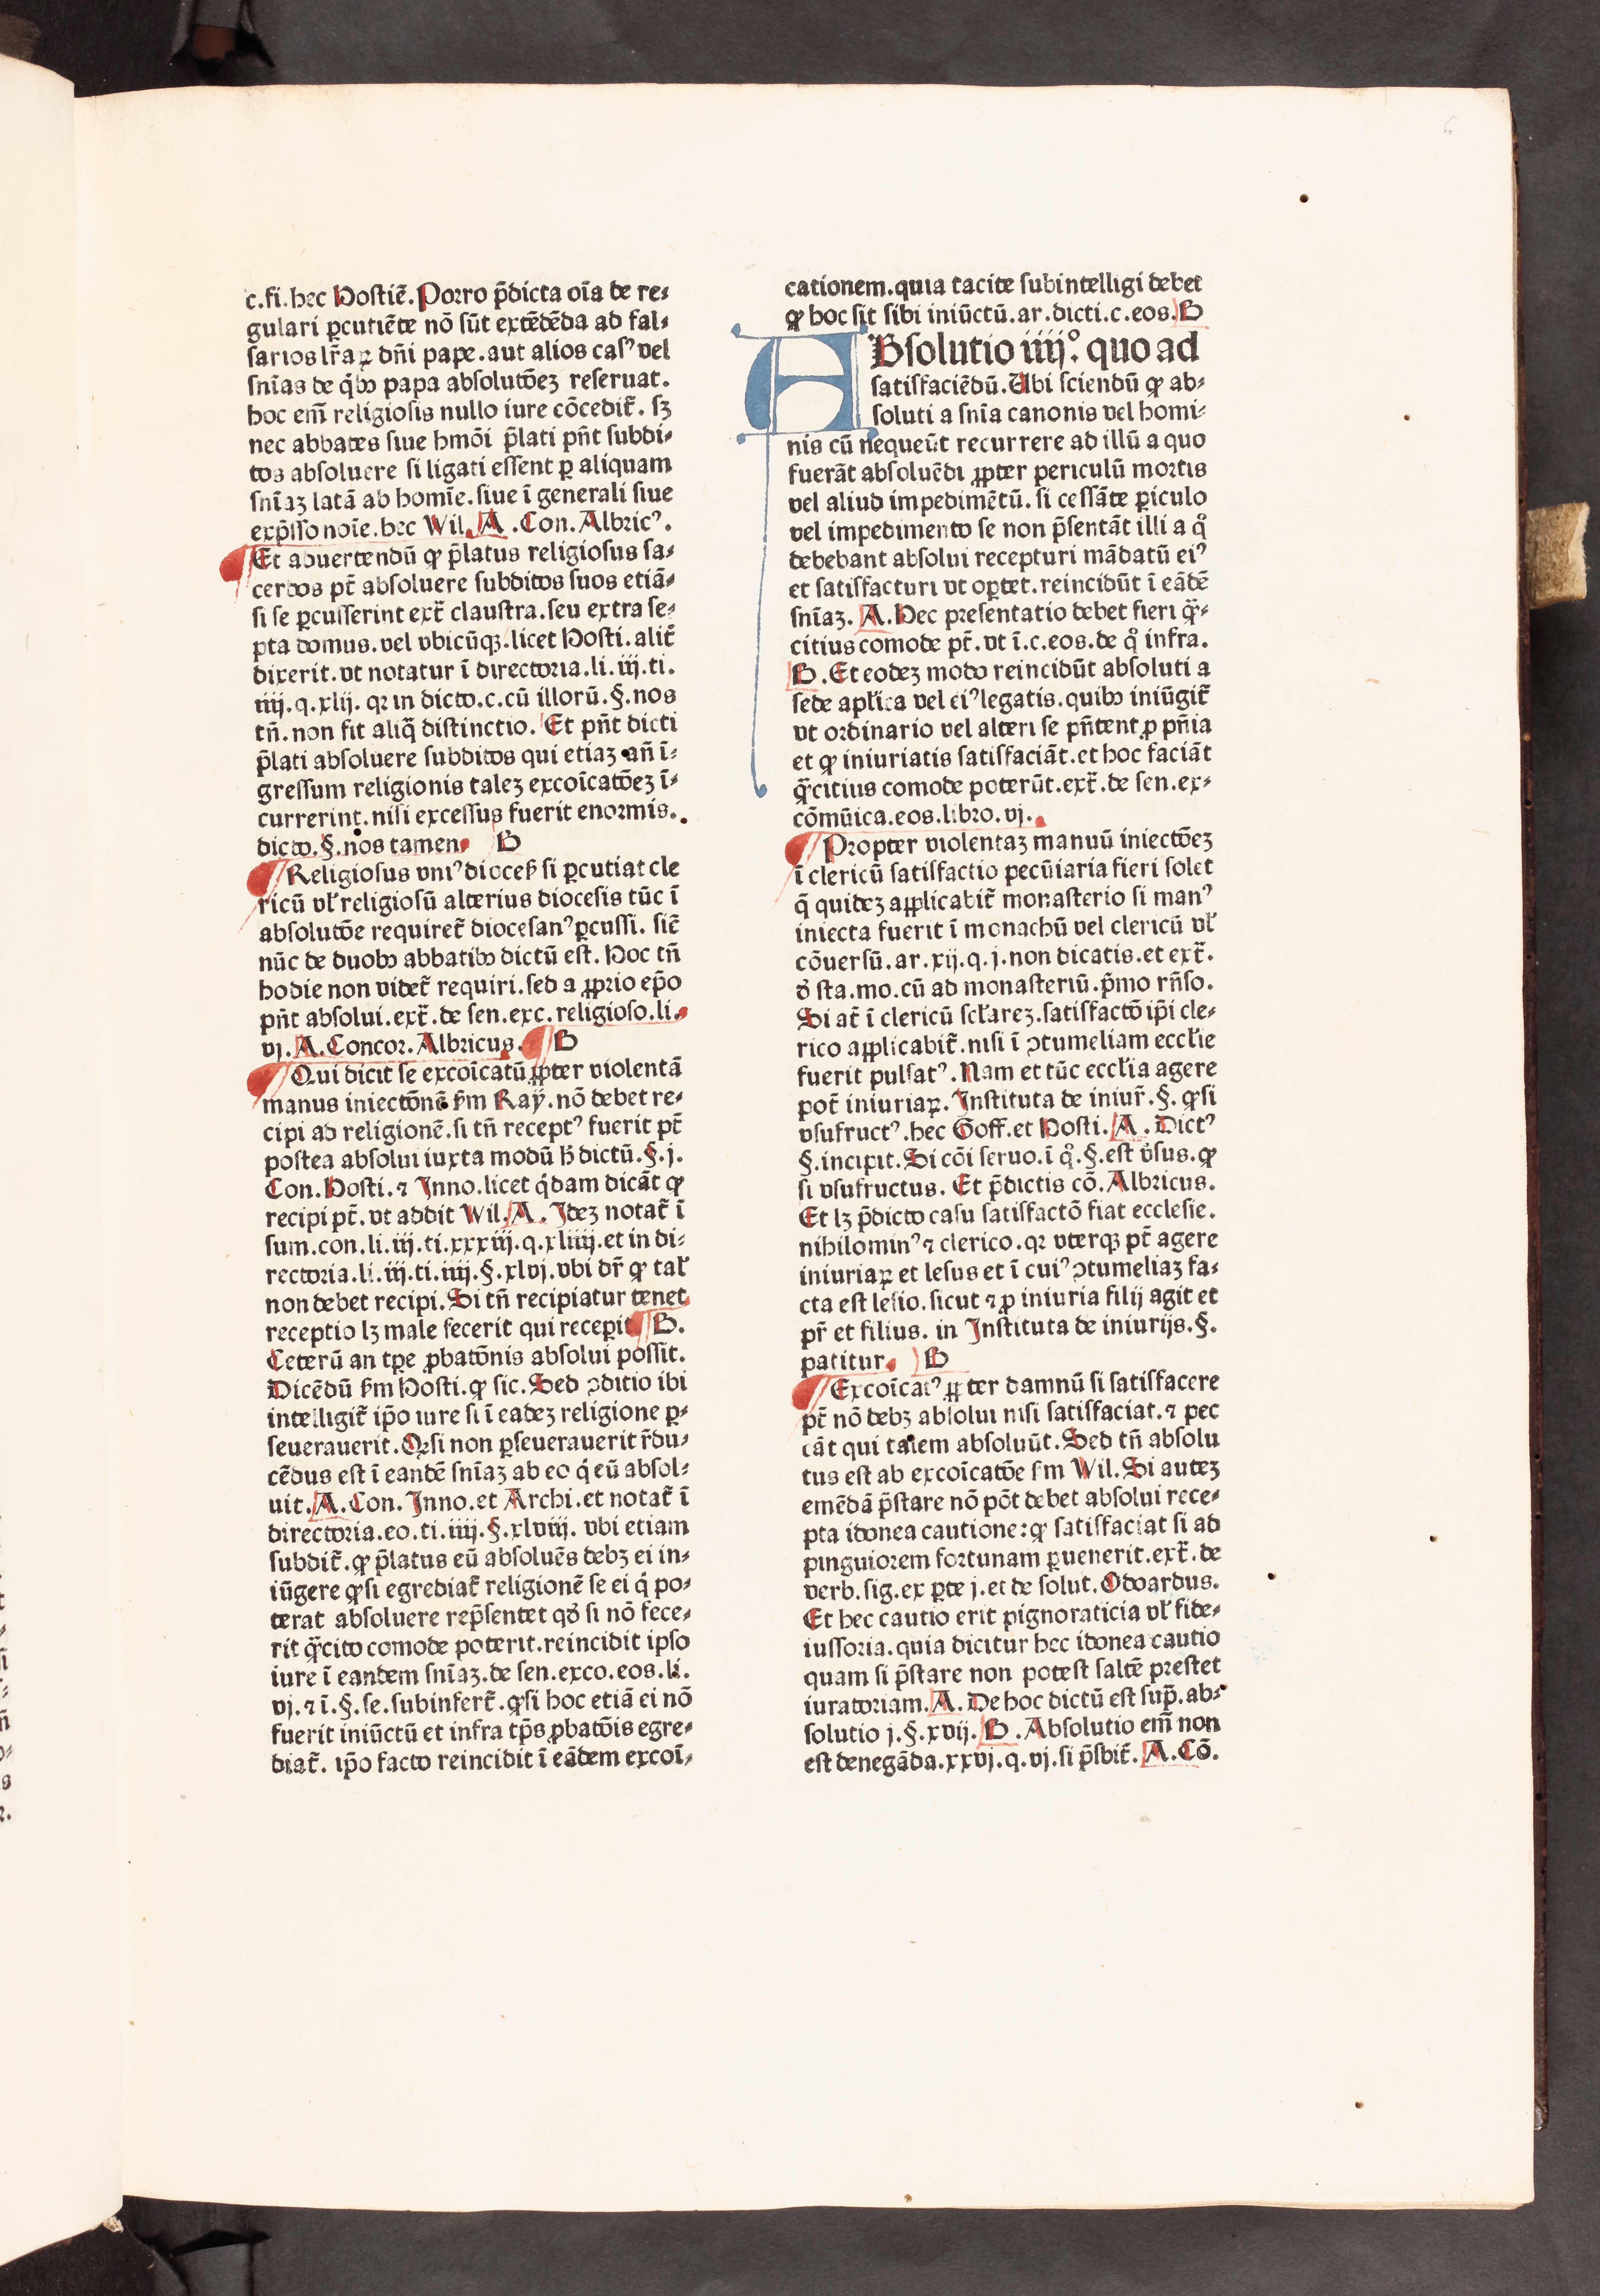 c.fi.hec Hostiē. Porro p̄dicta oīa de re⸗
gulari ꝑcutiēte nō sūt extēdēda ad fal⸗
sarios lr̄aꝝ dn̄i pape. aut alios casꝰ vel
snīas de q̇bꝫ papa absolutōeꝫ reseruat.
hoc em̄ religiosis nullo iure cōcedit̄. sꝫ
nec abbates siue hmōi p̄lati pn̄t subdi⸗
tos absoluere si ligati essent ꝑ aliquam
snīaꝫ latā ab homīe. siue ī generali siue
exp̄sso noīe. hec Wil. A .Con. Albricꝰ.
Et aduertendū ꝙ p̄latus religiosus sa⸗
cerdos pt̄ absoluere subditos suos etiā⸗
si se ꝑcusserint ext̄ claustra. seu extra se⸗
pta domus. vel vbicūqꝫ. licet Hosti. alit̄
dixerit. vt notatur ī directoria. li. iij. ti.
iiij. q. xlij. qꝛ in dicto. c. cū illorū. §. nos
tn̄. non fit aliq̄ distinctio. Et pn̄t dicti
p̄lati absoluere subditos qui etiaꝫ an̄ ī⸗
gressum religionis taleꝫ excoīcatōeꝫ ī⸗
currerint. nisi excessus fuerit enormis.
dicto. §. nos tamen. B
Religiosus vniꝰ dioceẜ si ꝑcutiat cle
ricū vl̓ religiosū alterius diocesis tūc ī
absolutōe requiret̄ diocesanꝰ ꝑcussi. sic̄
nūc de duobꝫ abbatibꝫ dictū est. Hoc tn̄
hodie non videt̄ requiri. sed a ꝓprio ep̄o
pn̄t absolui. ext̄. de sen. exc. religioso. li.
vj. A. Concor. Albricus. B
Qui dicit se excoīcatū ꝓpter violentā
manus iniectōnē ẜm Ray. nō debet re⸗
cipi ad religionē. si tn̄ receptꝰ fuerit pt̄
postea absolui iuxta modū h̄ dictū. §. j.
Con. Hosti. ⁊ Inno. licet q̇dam dicāt ꝙ
recipi pt̄. vt addit Wil. A. Ideꝫ notat̄ ī
sum. con. li. iij. ti. xxxiij. q. xliiij. et in di⸗
rectoria. li. iij. ti. iiij. §. xlvj. vbi dr̄ ꝙ tal̓
non debet recipi. Si tn̄ recipiatur tenet
receptio lꝫ male fecerit qui recepit B.
Ceterū an tꝑe ꝓbatōnis absolui possit.
Dicēdū ẜm Hosti. ꝙ sic. Sed ꝯditio ibi
intelligit̄ ip̄o iure si ī eadeꝫ religione ꝑ⸗
seuerauerit. Qꝛ si non ꝑseuerauerit r̄du⸗
cēdus est ī eandē snīaꝫ ab eo q̇ eū absol⸗
uit. A. Con. Inno. et Archi. et notat̄ ī
directoria. eo. ti. iiij. §. xlviij. vbi etiam
subdit̄. ꝙ p̄latus eū absoluēs debꝫ ei in⸗
iūgere ꝙ si egrediat̄ religionē se ei q̇ po⸗
terat absoluere rep̄sentet qd̓ si nō fece⸗
rit q̄cito comode poterit. reincidit ipso
iure ī eandem snīaꝫ. de sen. exco. eos. li.
vj. ⁊ ī. §. se. subinfert̄. ꝙ si hoc etiā ei nō
fuerit iniūctū et infra tp̄s ꝓbatōis egre⸗
diat̄. ip̄o facto reincidit ī eādem excoī⸗
cationem. quia tacite subintelligi debet
ꝙ hoc sit sibi iniūctū. ar. dicti. c. eos. B
ABsolutio iiij°. quo ad
satisfaciēdū. Ubi sciendū ꝙ ab⸗
soluti a snīa canonis vel homi⸗
nis cū nequeūt recurrere ad illū a quo
fuerāt absoluēdi ꝓpter periculū mortis
vel aliud impedimētū. si cessāte ꝑiculo
vel impedimento se non p̄sentāt illi a qͦ
debebant absolui recepturi mādatū eiꝰ
et satisfacturi vt oꝑtet. reincidūt ī eādē
snīaꝫ. A. Hec presentatio debet fieri q̄⸗
citius comode pt̄. vt ī. c. eos. de qͦ infra.
B. Et eodeꝫ modo reincidūt absoluti a
sede apl̓ica vel eiꝰ legatis. quibꝫ iniūgit̄
vt ordinario vel alteri se pn̄tent ꝓ pn̄ia
et ꝙ iniuriatis satisfaciāt. et hoc faciāt
q̄citius comode poterūt. ext̄. de sen. ex⸗
cōmūica. eos. libro. vj.
Propter violentaꝫ manuū iniectōeꝫ
ī clericū satisfactio pecūiaria fieri solet
q̄ quideꝫ applicabit̄ monasterio si manꝰ
iniecta fuerit ī monachū vel clericū vl̓
cōuersū. ar. xij. q. j. non dicatis. et ext̄.
d̓ sta. mo. cū ad monasteriū. p̄mo rn̄so.
Si at̄ ī clericū scl̓areꝫ. satisfactō ip̄i cle⸗
rico applicabit̄. nisi ī ꝯtumeliam eccl̓ie
fuerit pulsatꝰ. Nam et tūc eccl̓ia agere
pot̄ iniuriaꝝ. Instituta de iniur̄. §. ꝙ si
vsufructꝰ. hec Goff. et Hosti. A. Dictꝰ
§. incipit. Si cōi seruo. ī qͦ. §. est v̓sus. ꝙ
si vsufructus. Et p̄dictis cō. Albricus.
Et lꝫ p̄dicto casu satisfactō fiat ecclesie.
nihilominꝰ ⁊ clerico. qꝛ vterqꝫ pt̄ agere
iniuriaꝝ et lesus et ī cuiꝰ ꝯtumeliaꝫ fa⸗
cta est lesio. sicut ⁊ ꝓ iniuria filij agit et
pr̄ et filius. in Instituta de iniurijs. §.
patitur. B
Excoīcatꝰ ꝓpter damnū si satisfacere
pt̄ nō debꝫ absolui nisi satisfaciat. ⁊ pec
cāt qui talem absoluūt. Sed tn̄ absolu
tus est ab excoīcatōe ẜm Wil. Si auteꝫ
emēdā p̄stare nō pōt debet absolui rece⸗
pta idonea cautione: ꝙ satisfaciat si ad
pinguiorem fortunam ꝑuenerit. ext̄. de
verb. sig. ex ꝑte j. et de solut. Odoardus.
Et hec cautio erit pignoraticia vl̓ fide⸗
iussoria. quia dicitur hec idonea cautio
quam si p̄stare non potest saltē prestet
iuratoriam. A. De hoc dictū est sup̄. ab⸗
solutio j. §. xvij. B. Absolutio em̄ non
est denegāda. xxvj. q. vj. si p̄sbit̄. A. Cō.